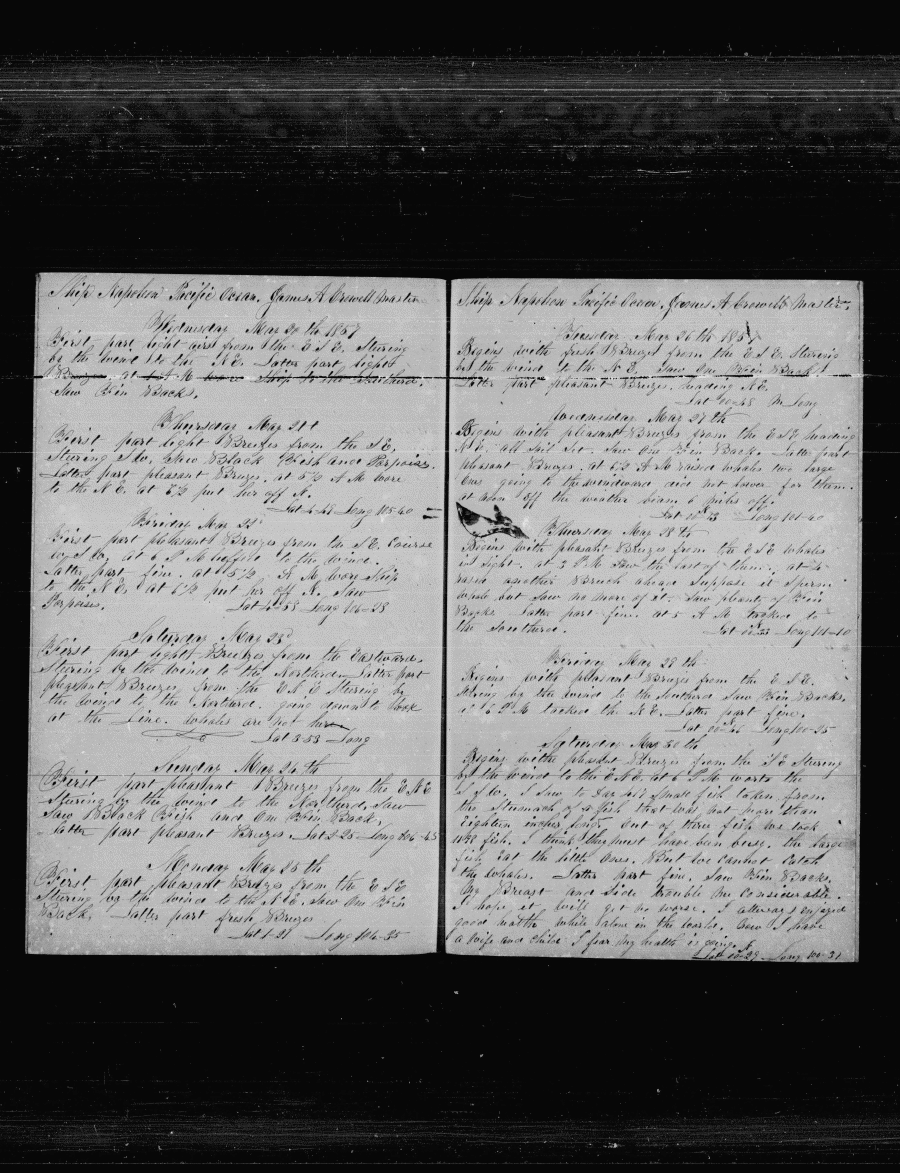 Ship Napoleon Pacific Ocean, James A Crowell Master
Wednesday May 20th 1857
First part light airs from the E S E. Sturing
by the wind to the N E. Latter part lights
Breezes at A M wore Ship to the Southard.
Saw Fin Backs.
Thursday May 21st
First part light Breezes from the S E,
Sturing S W, Saw Black Fish and Porpoises.
Latter part pleasant Breezes. at 5½ A M wore
to the N E. at 6½ put her off N.
Lat 4-43 Long 105-40
Friday May 22d
First part pleasant Breezes from the S E. Course
by S W. at 6 P M luffed to the wind.
Latter part fine. at 5½ A M wore Ship
to the N E at 6½ put her off N. Saw
Porpoises. Lat 4-53 Long 106-28
Saturday May 23d
First part light Breezes from the Eastward.
Sturing by the wind to the Northard. Latter part
pleasant Breezes from the E S E Sturing by
the wind to the Northard. going down to look
at the Line. Whales are not here
Lat 3-53 Long
Sunday May 24th
First part pleasant Breezes from the E N E
Sturing by the wind to the Northard, Saw
Saw Black Fish and One Fin Back,
Latter part pleasant Breezes. Lat 2-25 Long 106-45
Monday May 25th
First part pleasant Breezes from the E S E
Sturing by the wind to the N E. Saw One Fin
Back. Latter part fresh Breezes
Lat 1-27 Long 104-35
Ship Napoleon Pacific Ocean, James A Crowell Master.
Tuesday May 26th 1857
Begins with fresh Breezes from the E S E Sturing
by the wind to the N E. Saw One Fin Back
Latter part pleasant Breezes, heading N E.
Lat 00-48 Long
Wednesday May 27th
Begins with pleasant Breezes from the E S E heading
N E, all Sail Set. Saw One Fin Back. Latter part
pleasant Breezes. at 6½ A M raised whales two large
Ones going to the windward did not lower for them.
at noon off the weather beam 6 miles off.
Long 101-40
Thursday May 28th
Begins with pleasant Breezes from the E S E whales
in sight. at 2 P M Saw the last of them. at 4
raised another Breach ahead Suppose it Sperm
Whale but Saw no more of it. Saw plenty of Fin
Backs Latter part fine. at 5 A M tacked to
the Southard. Long 101-10
Friday May 29th
Begins with pleasant Breezes from the E S E.
Sturing by the wind to the Southard Saw Fin Backs,
at 6 P M tacked the N E. Latter part fine.
Long 100-25
Saturday May 30th
Begins with pleasant Breezes from the S E Sturing
by the wind to the E N E at 6 P M wore to the
S S W. I Saw to Day 417 Small fish taken from
the Stomach of a fish that was not more than
Eighteen inches long. Out of three fish we took
fish. I think they must have been busy. the large
fish Eat the little Ones. But we cannot Catch
the whales. Latter part fine. Saw Fin Backs.
My Breast and Side trouble me Considerable.
I hope it will get no worse. I allways enjoyed
good health while alone in the world. Now I have
a wife and child I fear my health is going.
Long 100-31